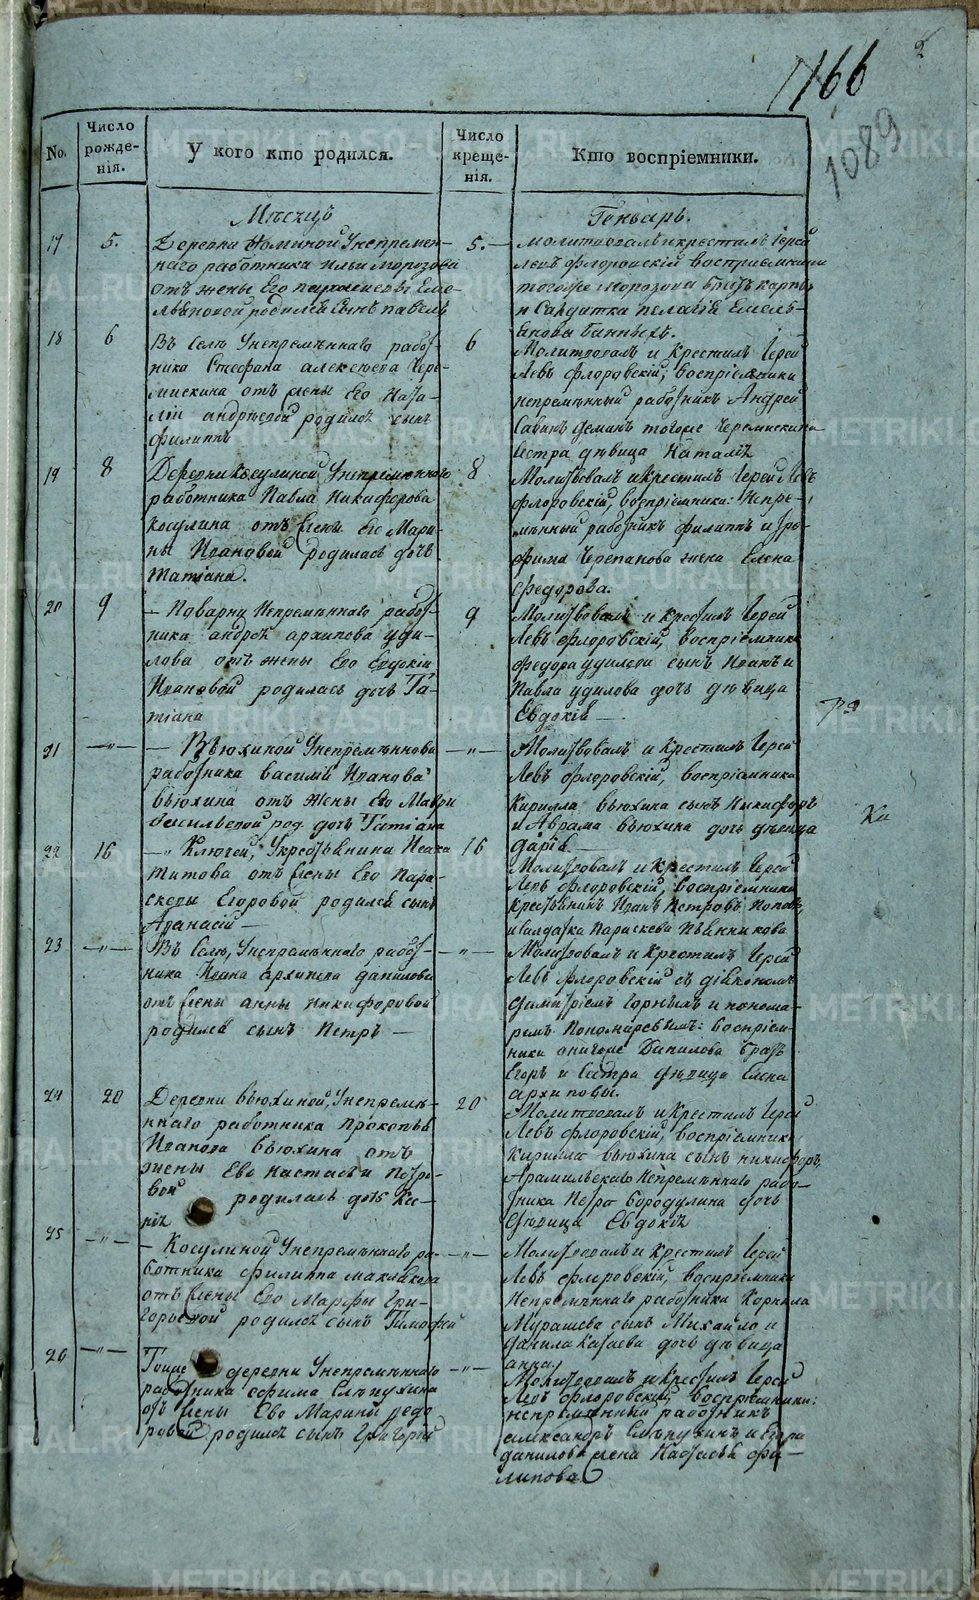 2
1166
1089
No.
Число рожде-нія.
У кого кто родился.
Число креще-нія.
Кто воспріемники.
Мѣсяцъ
Генварь.
17
5.
Деревни Фоминой Унепремен-
наго работника Ильи Морозова
отъ жены Его Еме-
льяновой родился сынъ павелъ
5.
молитвовалъ и крестилъ Іерей
левъ флоровскій восприемники
тогоже Морозова братъ карпъ
и Салдатка пелагія Емель-
янова
18
6
Въ селѣ Унепремѣннаго работ-
ника Стефана алексѣева Чере-
мискина отъ жены Его Ната-
ліи андрѣевой родился сынъ
филиппъ
6
Молитвовалъ и Крестилъ Іерей
Левъ флоровскій, воспріемники
непремѣнный работникъ Андрей
тогоже Черемискина
сестра дѣвица Наталія
19
8
Деревни Косулиной Унепремѣннаго
работника Павла Никифорова
Косулина отъ жены его Мари-
ны Ивановой родилась дочь
Татіана.
8
Молитвовалъ и Крестилъ Іерей Левъ
флоровскій, воспріемники: Непре-
мѣнный работникъ филиппъ и тро-
фима Черепанова жена Елена
федорова.
20
9
— Поварни Непремѣннаго работ-
ника андрея архипова уди-
лова отъ жены Его Евдокіи
Ивановой родилась дочь Та-
тіана
9
Молитвовалъ и Крестилъ Іерей
Левъ флоровскій, воспріемники
федора удилова сынъ Иванъ и
Павла удилова дочь дѣвица
Евдокія —.
21
— " —
— Вьюхиной Унепремѣннова
работника василия Иванова
вьюхина отъ жены Его Мавры
Васильевой род. дочь Татіана
— " —
Молитвовалъ и Крестилъ Іерей
Левъ флоровскій, воспріемники
Кирилла вьюхина сынъ Никифоръ
и Аврама вьюхина дочь дѣвица
дарія. —
22
16
— " Ключей, Укрестьянина Исака
Титова отъ жены Его Пара-
скевы Егоровой родился сынъ
Афанасій —
16
Молитвовалъ и Крестилъ Іерей
Левъ флоровскій, воспріемники
крестьянинъ Иванъ Петровъ Поповъ,
и салдатка Параскева Пьянникова
23
— " —
Въ Селѣ, Унепремѣннаго работ-
ника Ивана Архипова данилова
отъ жены анны никифоровой
родился сынъ Петръ —
— " —
Молитвовалъ и Крестилъ Іерей
Левъ флоровскій съ діакономъ
Димитріемъ Горныхъ и понома-
ремъ Пономаревымъ: воспріем-
ники Данилова братъ
Егоръ и сестра дѣвица Елена
архиповы.
24
20
Деревни вьюхиной, Унепремѣ-
ннаго работника Прокопья
Иванова вьюхина отъ
жены Ево Настасьи Петро-
вой родилась дочь Ксе-
нія
20
Молитвовалъ и Крестилъ Іерей
Левъ флоровскій, воспріемники
Кирилла вьюхина сынъ никифоръ,
Арамильскаго Непремѣннаго рабо-
тника Петра Бородулина дочь
дѣвица Евдокія
25
— " —
— Косулиной Унепремѣннаго ра-
ботника филиппа маклакова
отъ жены Его Марфы Гри-
горьевой родился сынъ Тимофей
— " —
Молитвовалъ и Крестилъ Іерей
Левъ флоровскій, воспріемники
Непремѣннаго работника Корнила
Мурашева сынъ Михайло и
данила Катаева дочь дѣвица
анна.
26
— " —
Тоже деревни Унепремѣннаго
работника Ефима Слѣпухина
отъ жены Ево Марины федо
ровой родился сынъ Григорій
— " —
Молитвовалъ и Крестилъ Іерей
Левъ флоровскій, воспріемники:
непремѣнный работникъ
александръ Слѣпухинъ и Егора
данилова жена Настасья фи-
липова
METRIKI.GASO-URAL.RU